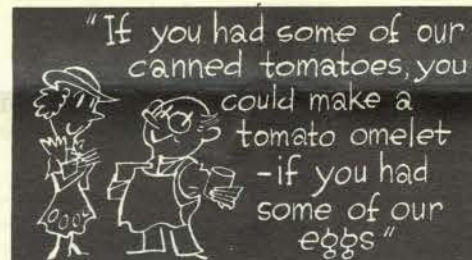 "If you had some of our
canned tomatoes, you
could make a
tomato omelet
-if you had
some of our
eggs"